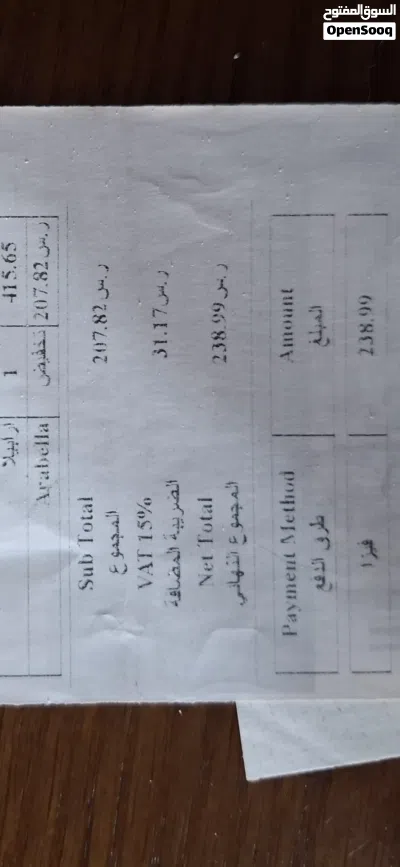 السوق المفتوح
OpenSooq
ارابيلا 1 415.65
Arabella تخفيض ر.س 207.82
Sub Total ر.س 207.82
المجموع
VAT 15% ر.س 31.17
الضريبة المضافة
Net Total ر.س 238.99
المجموع النهائي
Payment Method Amount
طرق الدفع المبلغ
فيزا 238.99